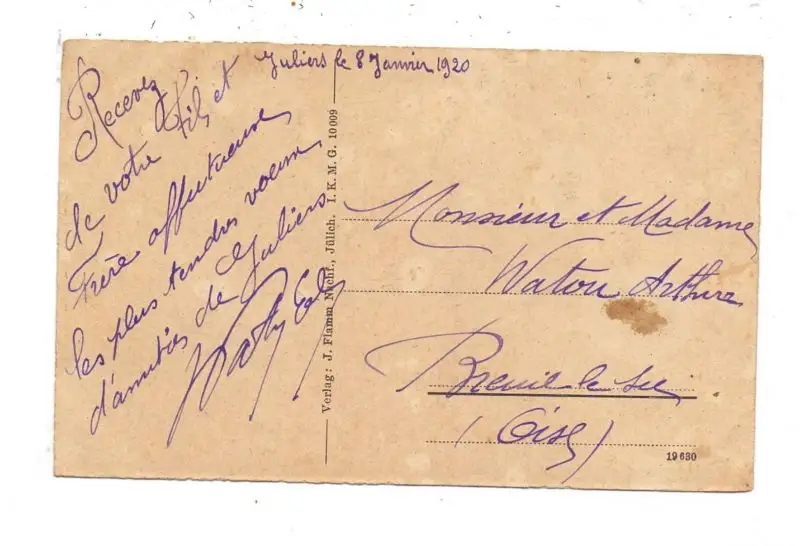 Juliers le 8 Janvier 1920
Recevez
de votre fils et
Frère affectueux
les plus tendres voeux
d'amitiés de Juliers
Verlag: J. Flamm Nachf., Jülich. I. K. M. G. 10009
Monsieur et Madame
Watou Arthur
Breuil le Sec
(Oise)
19630